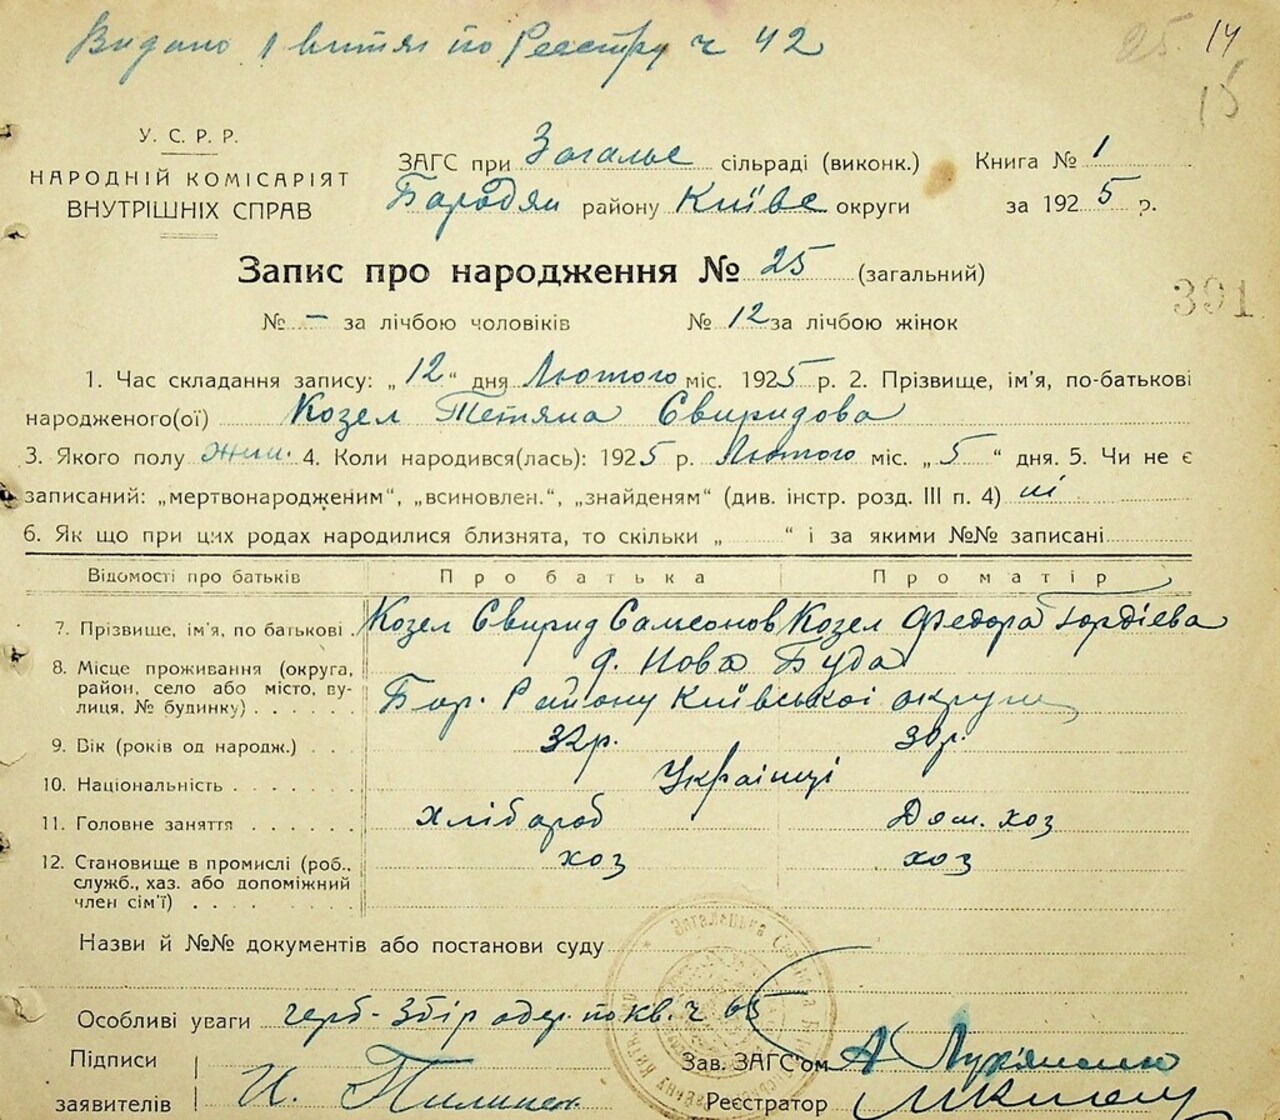 Видано 1 витяг по Реєстру ч 42
25. 14
15
У. С. Р. Р.
НАРОДНІЙ КОМІСАРІЯТ
ВНУТРІШНІХ СПРАВ
ЗАГС при Загальс сільраді (виконк.) Книга № 1
Бородян району Київс округи за 1925 р.
Запис про народження № 25 (загальний)
391
№ – за лічбою чоловіків № 12 за лічбою жінок
1. Час складання запису: „12“ дня Лютого міс. 1925 р. 2. Прізвище, ім’я, по-батькові
народженого(ої) Козел Тетяна Свиридова
3. Якого полу жин. 4. Коли народився(лась): 1925 р. Лютого міс. „5“ дня. 5. Чи не є
записаний: „мертвонародженим“, „всиновлен.“, „знайденям“ (див. інстр. розд. III п. 4) ні
6. Як що при цих родах народилися близнята, то скільки „ “ і за якими №№ записані
Відомості про батьків Про батька Про матір
7. Прізвище, ім’я, по батькові Козел Свирид Самсонов Козел Федора Гордієва
8. Місце проживання (округа, д. Нова Буда
район, село або місто, ву- Бор. Району Київської округи
лиця, № будинку)
9. Вік (років од народж.) 32р. 30р.
10. Національність Українці
11. Головне заняття хлібороб Дом. хоз
12. Становище в промислі (роб., хоз хоз
служб., хаз. або допоміжний
член сім’ї)
Назви й №№ документів або постанови суду
Особливі уваги герб-збір одер. по кв. ч 65
Підписи Зав. ЗАГС’ом А Лук'яненко
заявителів Реєстратор